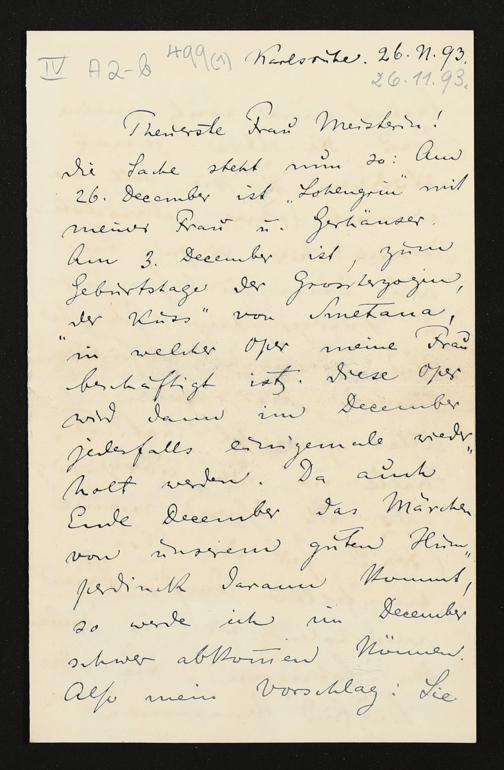 IV A2-b 499(1) Karlsruhe. 26. 11. 93.
26.11.93.
Theuerste Frau Meisterin!
die Sache steht nun so: Am
26. December ist „Lohengrin" mit
meiner Frau u. Gerhäuser.
Am 3. December ist, zum
Geburtstage der Grossherzogin,
„der Kuss" von Smetana,
in welcher Oper meine Frau
beschäftigt ist. diese Oper
wird dann im December
jedesfalls einigemale wieder„
holt werden. Da auch
Ende December das Märchen
von unserem guten Hum„
perdinck darann kommt,
so werde ich im December
schwer abkommen können.
Also mein Vorschlag: Sie